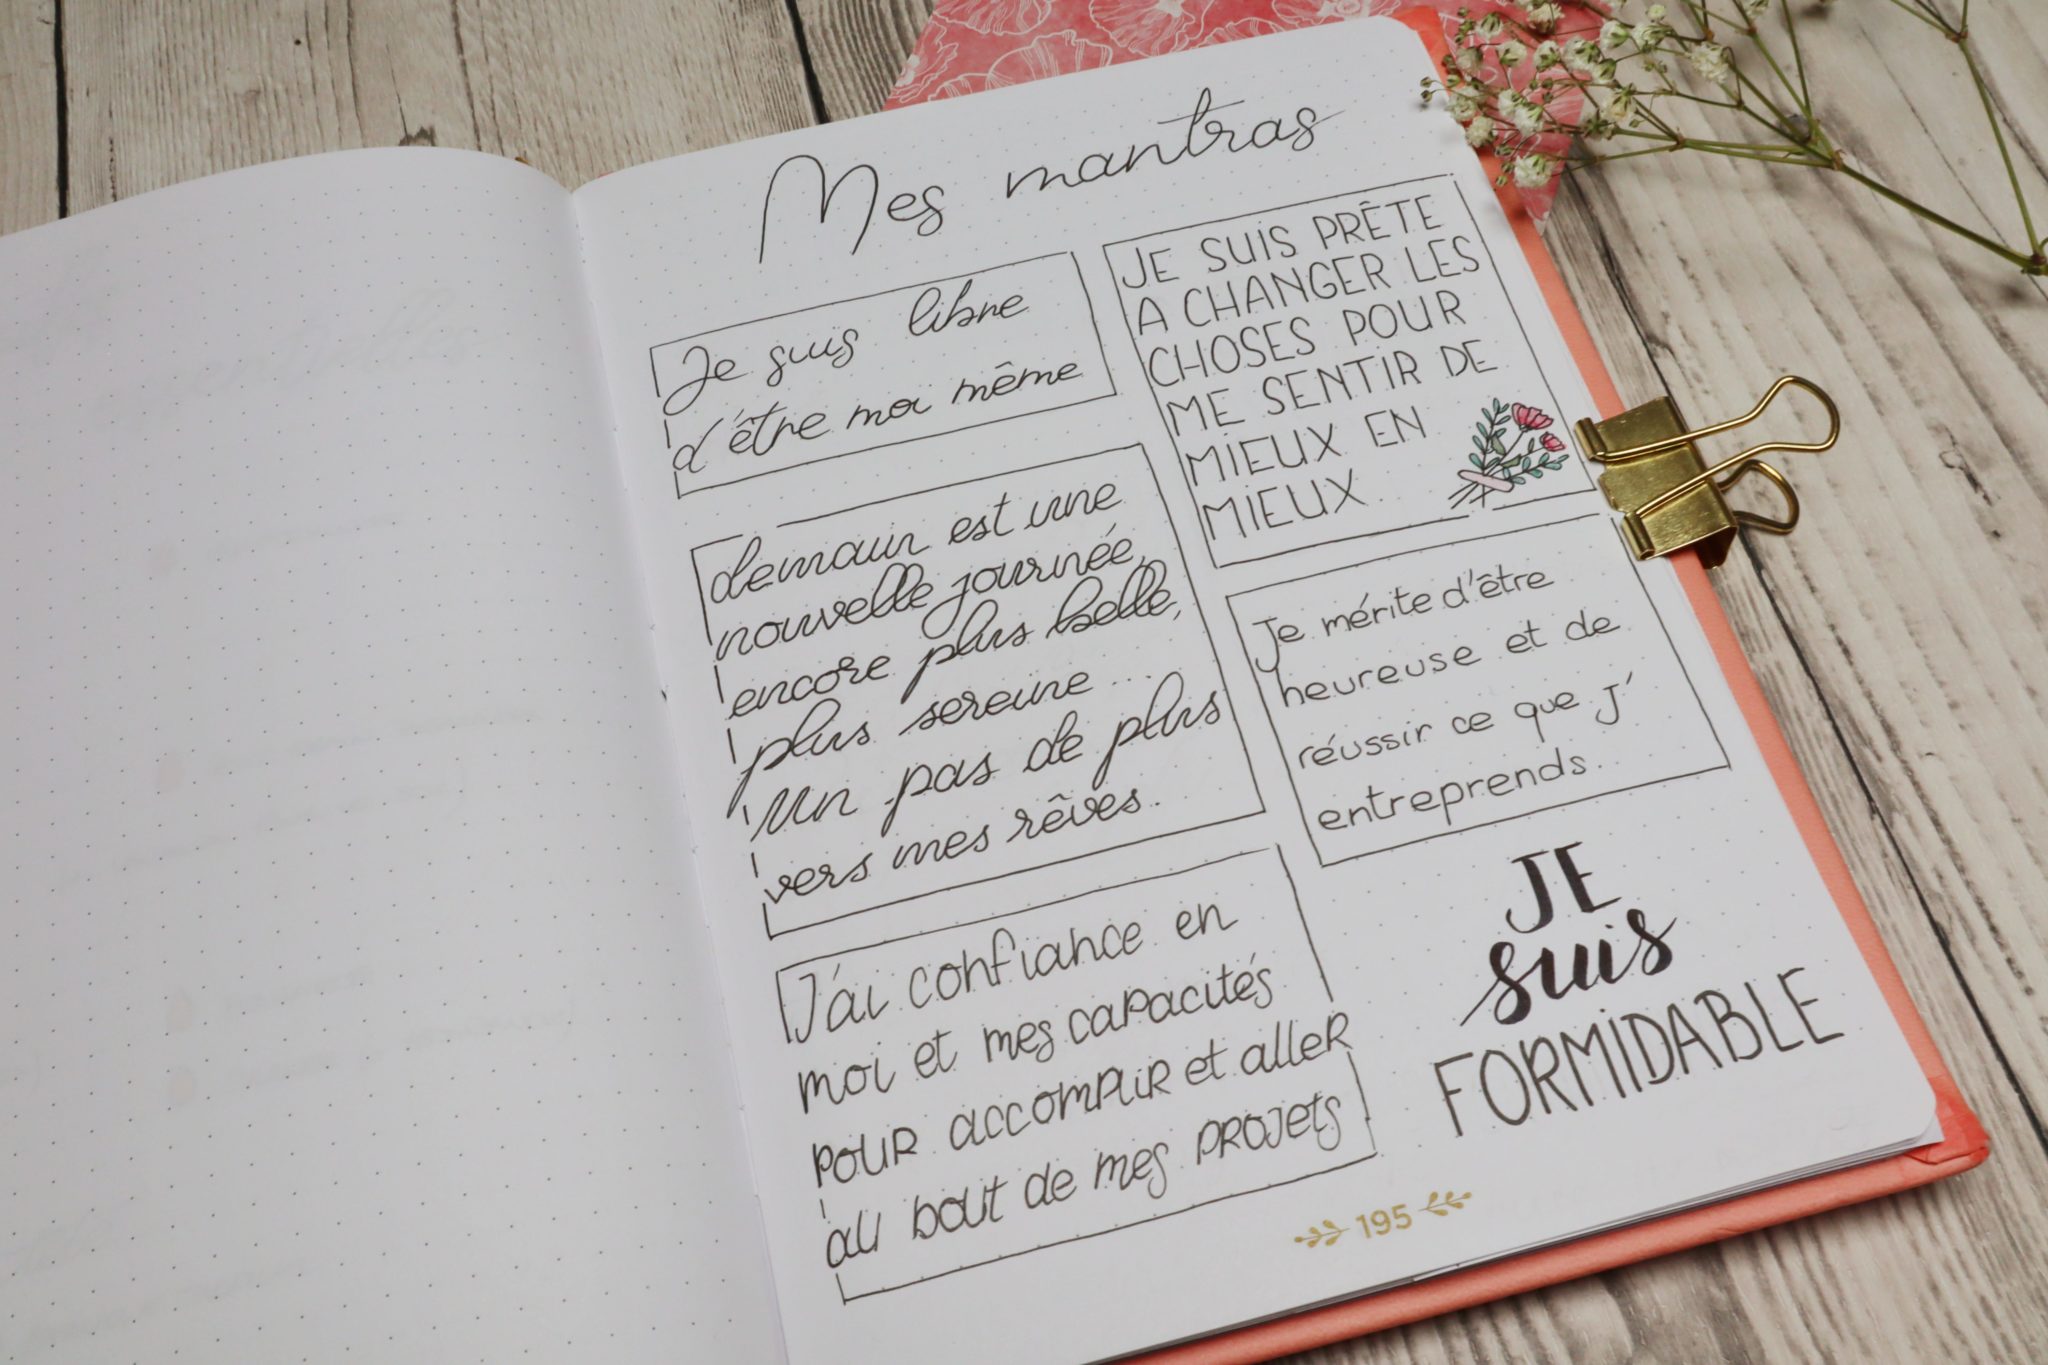 Mes mantras
Je suis libre
d'être moi même
demain est une
nouvelle journée,
encore plus belle,
plus sereine...
Un pas de plus
vers mes rêves.
J'ai confiance en
moi et mes capacités
pour accomplir et aller
au bout de mes projets
JE SUIS PRÊTE
A CHANGER LES
CHOSES POUR
ME SENTIR DE
MIEUX EN
MIEUX
Je mérite d'être
heureuse et de
réussir ce que j'
entreprends.
JE
suis
FORMIDABLE
195